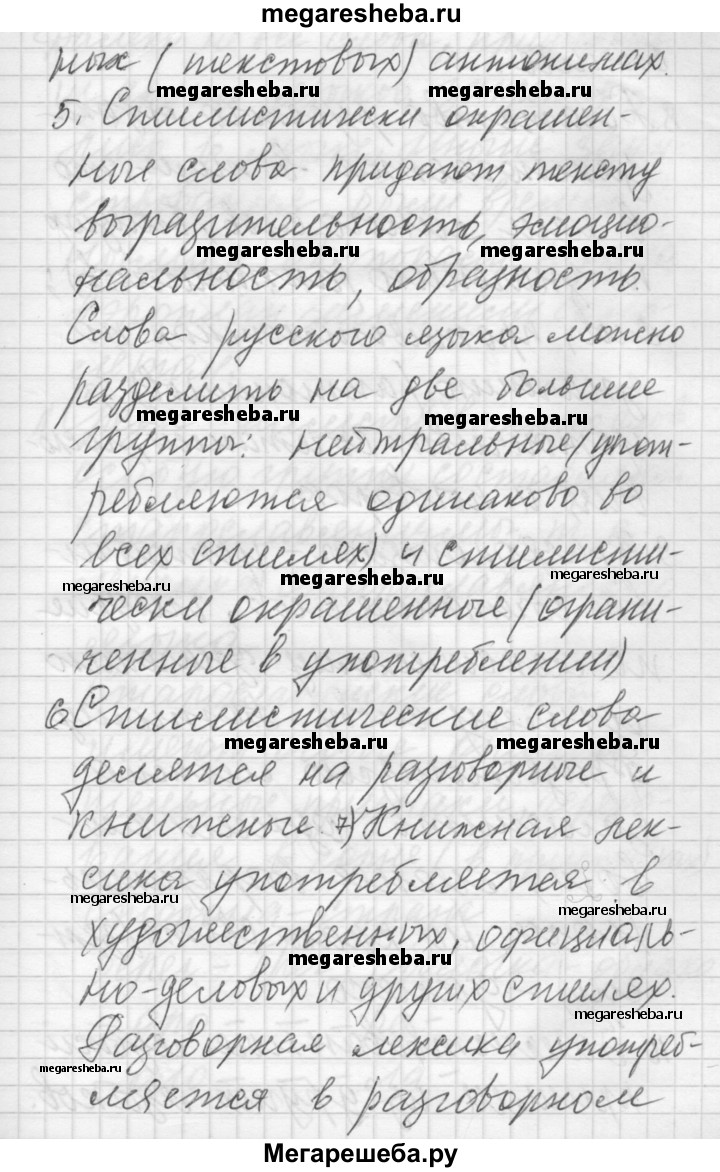 megaresheba.ru
ных (текстовых) антонимах.
megaresheba.ru megaresheba.ru
5. Стилистически окрашен-
ные слова придают тексту
выразительность, эмоцио-
megaresheba.ru megaresheba.ru
нальность, образность.
Слова русского языка можно
разделить на две большие
megaresheba.ru megaresheba.ru
группы: нейтральные (упот-
ребляются одинаково во
всех стилях) и стилисти-
megaresheba.ru megaresheba.ru megaresheba.ru
чески окрашенные (ограни-
ченные в употреблении)
6. Стилистические слова
megaresheba.ru megaresheba.ru
делятся на разговорные и
книжные. 7) Книжная лек-
сика употребляется в
megaresheba.ru megaresheba.ru
художественных, официаль-
megaresheba.ru
но-деловых и других стилях.
megaresheba.ru
Разговорная лексика употреб-
megaresheba.ru
ляется в разговорном
Мегарешеба.ру